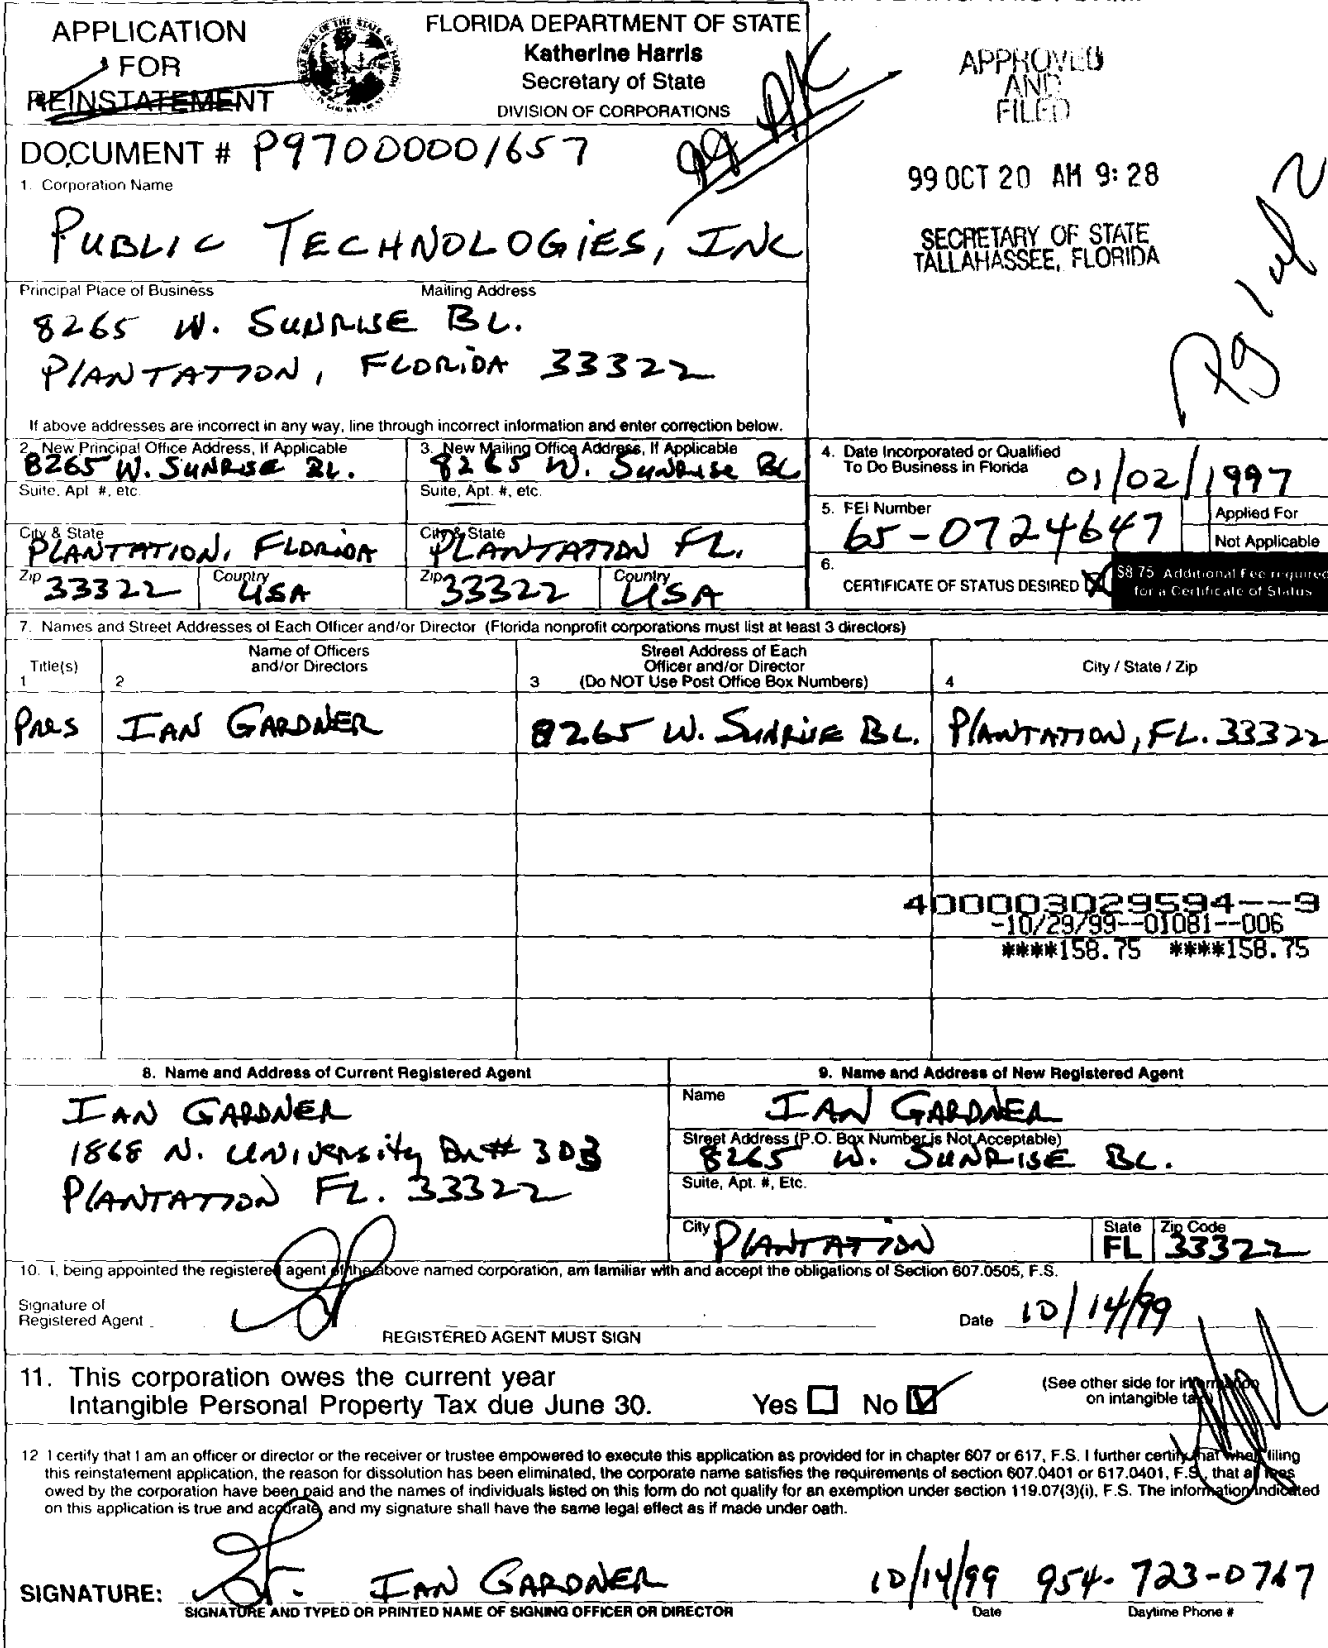 APPLICATION
FOR
REINSTATEMENT
FLORIDA DEPARTMENT OF STATE
Katherine Harris
Secretary of State
DIVISION OF CORPORATIONS
99 AR
APPROVED
AND
FILED
99 OCT 20 AM 9:28
SECRETARY OF STATE
TALLAHASSEE, FLORIDA
Pg 1 of 2
DOCUMENT # P97000001657
1. Corporation Name
PUBLIC TECHNOLOGIES, INC
Principal Place of Business Mailing Address
8265 W. SUNRISE BL.
PLANTATION, FLORIDA 33322
If above addresses are incorrect in any way, line through incorrect information and enter correction below.
2. New Principal Office Address, If Applicable
8265 W. SUNRISE BL.
Suite, Apt. #, etc.
City & State
PLANTATION, FLORIDA
Zip 33322 Country USA
3. New Mailing Office Address, If Applicable
8265 W. SUNRISE BL
Suite, Apt. #, etc.
City & State
PLANTATION FL.
Zip 33322 Country USA
4. Date Incorporated or Qualified
To Do Business in Florida 01/02/1997
5. FEI Number
65-0724647
Applied For
Not Applicable
6.
CERTIFICATE OF STATUS DESIRED
$8.75 Additional Fee required
for a Certificate of Status
7. Names and Street Addresses of Each Officer and/or Director (Florida nonprofit corporations must list at least 3 directors)
Title(s)
1
Name of Officers
and/or Directors
2
Street Address of Each
Officer and/or Director
3 (Do NOT Use Post Office Box Numbers)
City / State / Zip
4
PRES IAN GARDNER 8265 W. SUNRISE BL. PLANTATION, FL. 33322
400003029594--9
-10/29/99--01081--006
****158.75 ****158.75
8. Name and Address of Current Registered Agent
IAN GARDNER
1868 N. UNIVERSITY DR # 303
PLANTATION FL. 33322
9. Name and Address of New Registered Agent
Name IAN GARDNER
Street Address (P.O. Box Number is Not Acceptable)
8265 W. SUNRISE BL.
Suite, Apt. #, Etc.
City PLANTATION State FL Zip Code 33322
10. I, being appointed the registered agent of the above named corporation, am familiar with and accept the obligations of Section 607.0505, F.S.
Signature of
Registered Agent
REGISTERED AGENT MUST SIGN
Date 10/14/99
11. This corporation owes the current year
Intangible Personal Property Tax due June 30. Yes No
(See other side for information
on intangible tax)
12 I certify that I am an officer or director or the receiver or trustee empowered to execute this application as provided for in chapter 607 or 617, F.S. I further certify that when filing
this reinstatement application, the reason for dissolution has been eliminated, the corporate name satisfies the requirements of section 607.0401 or 617.0401, F.S., that all fees
owed by the corporation have been paid and the names of individuals listed on this form do not qualify for an exemption under section 119.07(3)(i), F.S. The information indicated
on this application is true and accurate, and my signature shall have the same legal effect as if made under oath.
SIGNATURE: IAN GARDNER 10/14/99 954-723-0767
SIGNATURE AND TYPED OR PRINTED NAME OF SIGNING OFFICER OR DIRECTOR Date Daytime Phone #